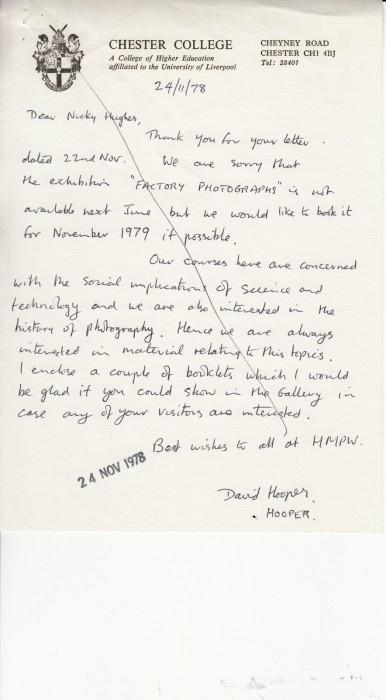 CHESTER COLLEGE
A College of Higher Education
affiliated to the University of Liverpool
CHEYNEY ROAD
CHESTER CH1 4BJ
Tel: 28401
24/11/78
Dear Nicky Hughes,
Thank you for your letter.
dated 22nd Nov. We are sorry that
the exhibition "FACTORY PHOTOGRAPHS" is not
available next June but we would like to book it
for November 1979 if possible.
Our courses here are concerned
with the social implications of science and
technology and we are also interested in the
history of photography. Hence we are always
interested in material relating to this topics.
I enclose a couple of booklets which I would
be glad if you could show in the Gallery in
case any of your visitors are interested.
Best wishes to all at HMPW.
24 NOV 1978
David Hooper.
. HOOPER.